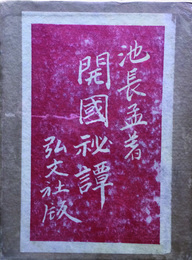 池長孟著
開國秘譚
弘文社版